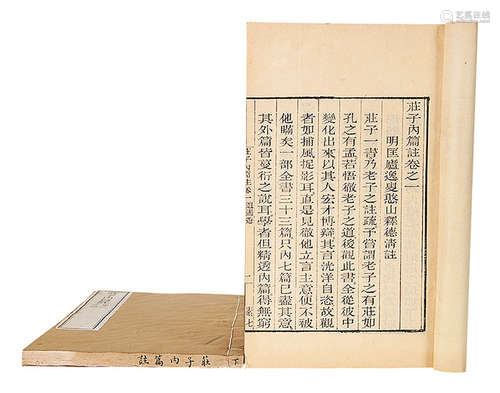 莊子內篇註卷之一
明匡廬逸叟憨山釋德清註
莊子一書乃老子之註疏予嘗謂老子之有莊如
孔之有孟若悟徹老子之道後觀此書全從彼中
變化出來以其人宏才博辯其言洸洋自恣故觀
者如捕風捉影耳直是見徹他立言主意便不被
他瞞矣一部全書三十三篇只內七篇已盡其意
其外篇皆蔓衍之說耳學者但精透內篇得無窮
莊子內篇註卷一
一
莊子內篇註
下